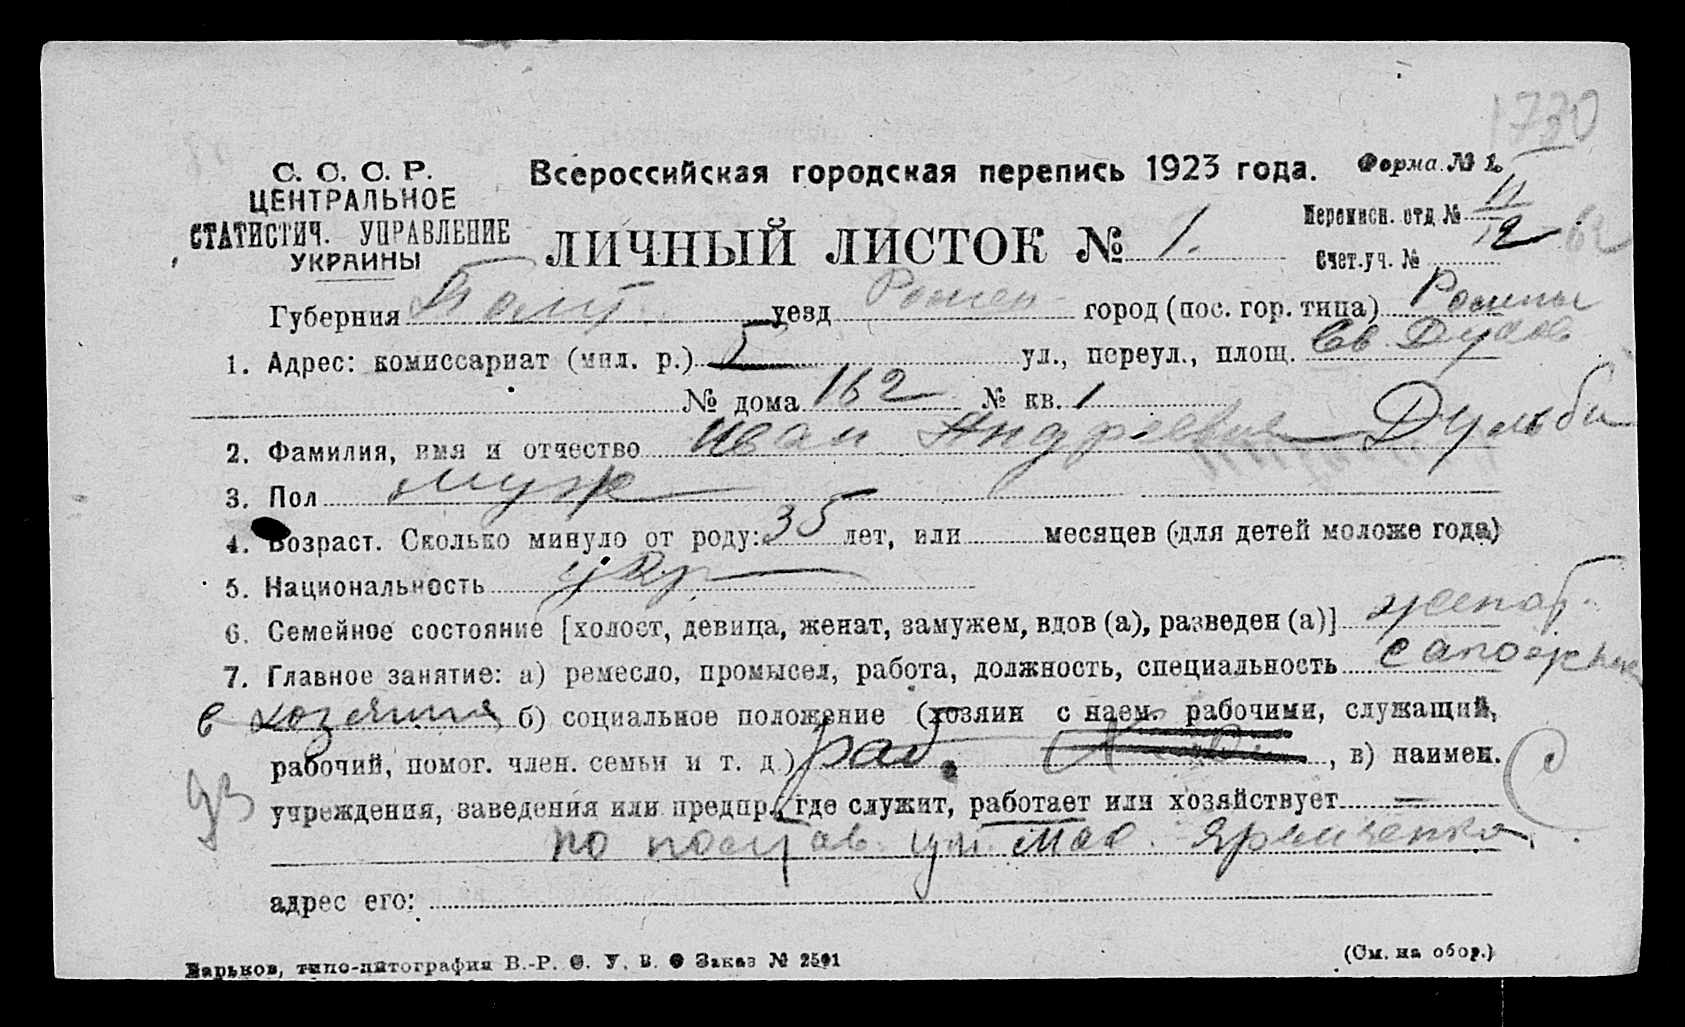 1730
С. С. С. Р.
ЦЕНТРАЛЬНОЕ
СТАТИСТИЧ. УПРАВЛЕНИЕ
УКРАИНЫ
Всероссийская городская перепись 1923 года.
Форма № 1.
ЛИЧНЫЙ ЛИСТОК № 1.
Переписн. отд № 11
Счет.уч. № 12 62
Губерния Полт. уезд Ромен город (пос. гор. типа) Ромны
1. Адрес: комиссариат (мил. р.) 5 ул., переул., площ. Св Духов
№ дома 162 № кв. 1
2. Фамилия, имя и отчество Иван Андреевич
3. Пол муж
4. Возраст. Сколько минуло от роду: 35 лет, или месяцев (для детей моложе года)
5. Национальность укр
6. Семейное состояние [холост, девица, женат, замужем, вдов (а), разведен (а)] женат
7. Главное занятие: а) ремесло, промысел, работа, должность, специальность сапожник
б) социальное положение (хозяин с наем. рабочими, служащий,
рабочий, помог. член. семьи и т. д.) раб. , в) наимен.
учреждения, заведения или предпр., где служит, работает или хозяйствует
по
адрес его:
Харьков, типо-литография В.-Р. Ф. У. В. О Заказ № 2501
(См. на обор.)